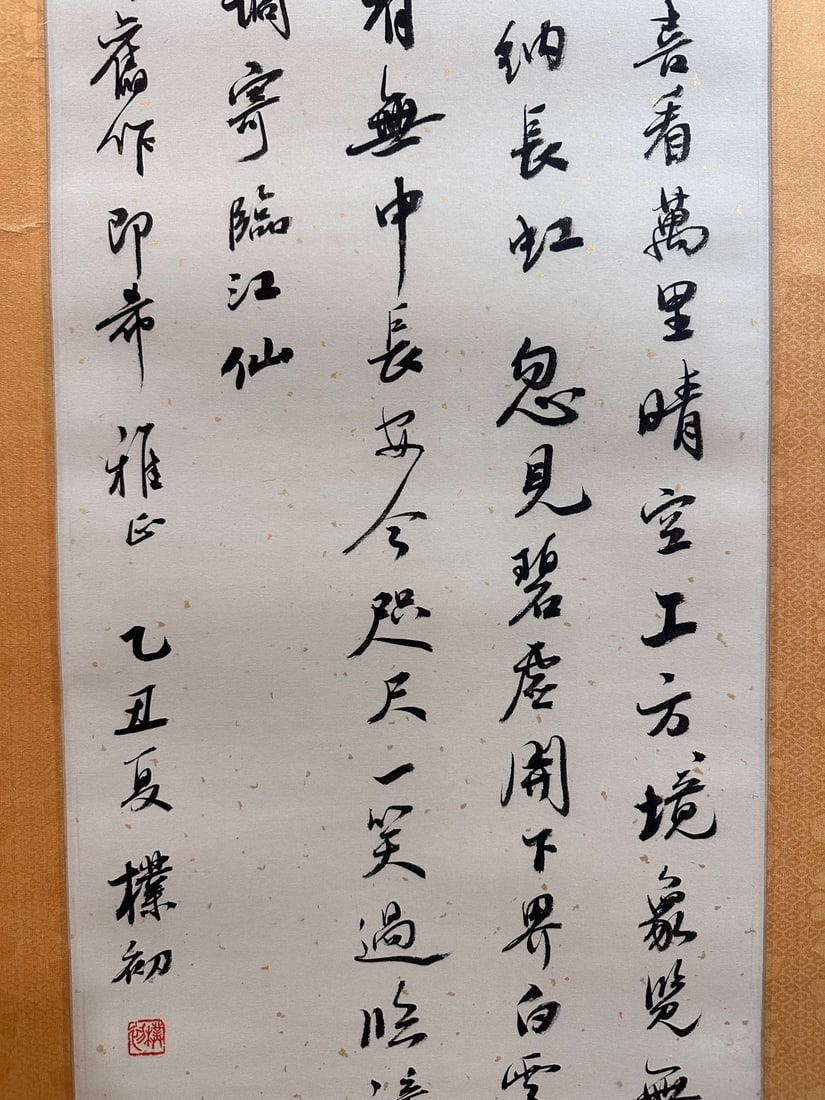 喜看萬里晴空工方境象覽無
納長虹 忽見碧虛開下界白雲
有無中長安今咫尺一笑過臨潼
調寄臨江仙
舊作即希 雅正 乙丑夏 樸初
樸初